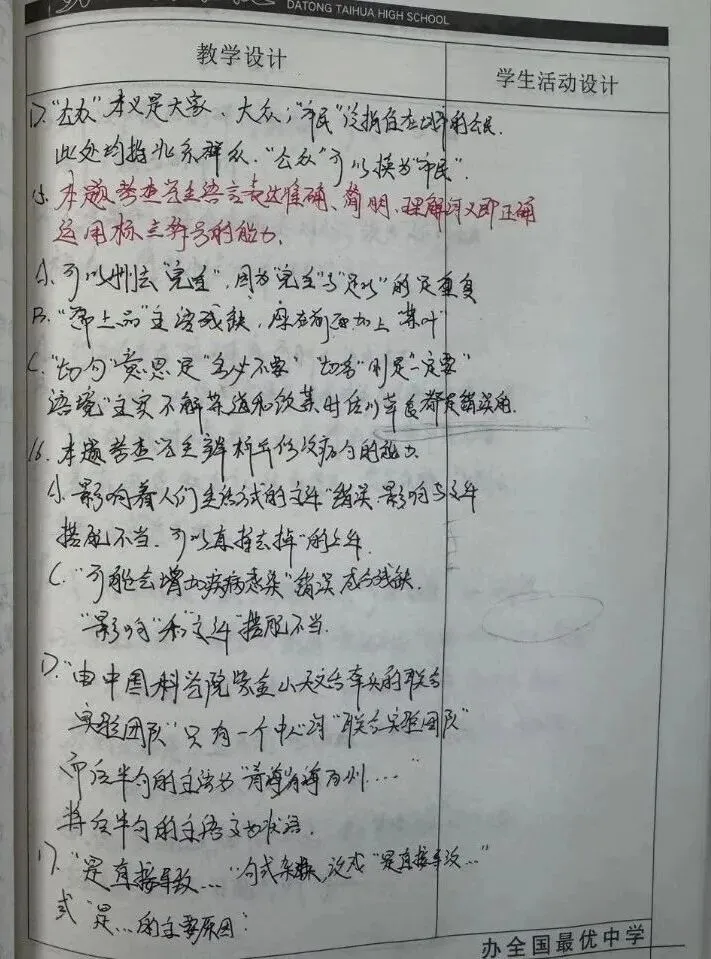 DATONG TAIHUA HIGH SCHOOL
教学设计
学生活动设计
D. "公众"本义是大家、大众;"市民"
此处均指 群众."公众"可以换为"市民".
15. 本题考查学生语言表达准确、简明,理解词义即正确
运用标点符号的能力.
A. 可以删去"完全", 因为"完全"与"足以"的 重复
B. "上品"主语残缺, 应在前面加上"茶叶"
C. "切勿"意思是"千万不要" "切务"则是"一定要"
语境"主宾不解茶道和饮茶时 都是错误的.
16. 本题考查学生辨析并修改病句的能力
A. 影响着人们生活方式的文件"错误.影响与文件
搭配不当. 可以直接去掉"的文件.
C. "可能会增加疾病感染"错误 成分残缺.
"影响"和"文件"搭配不当.
D. "由中国科学院紫金山天文台牵头的联合
实验团队"只有一个中心词"联合实验团队"
而后半句的主语为"青海省海西州...."
将后半句的主语 状语.
17. "是直接导致..."句式杂糅,改成"直接导致..."
或"是...的主要原因"
办全国最优中学